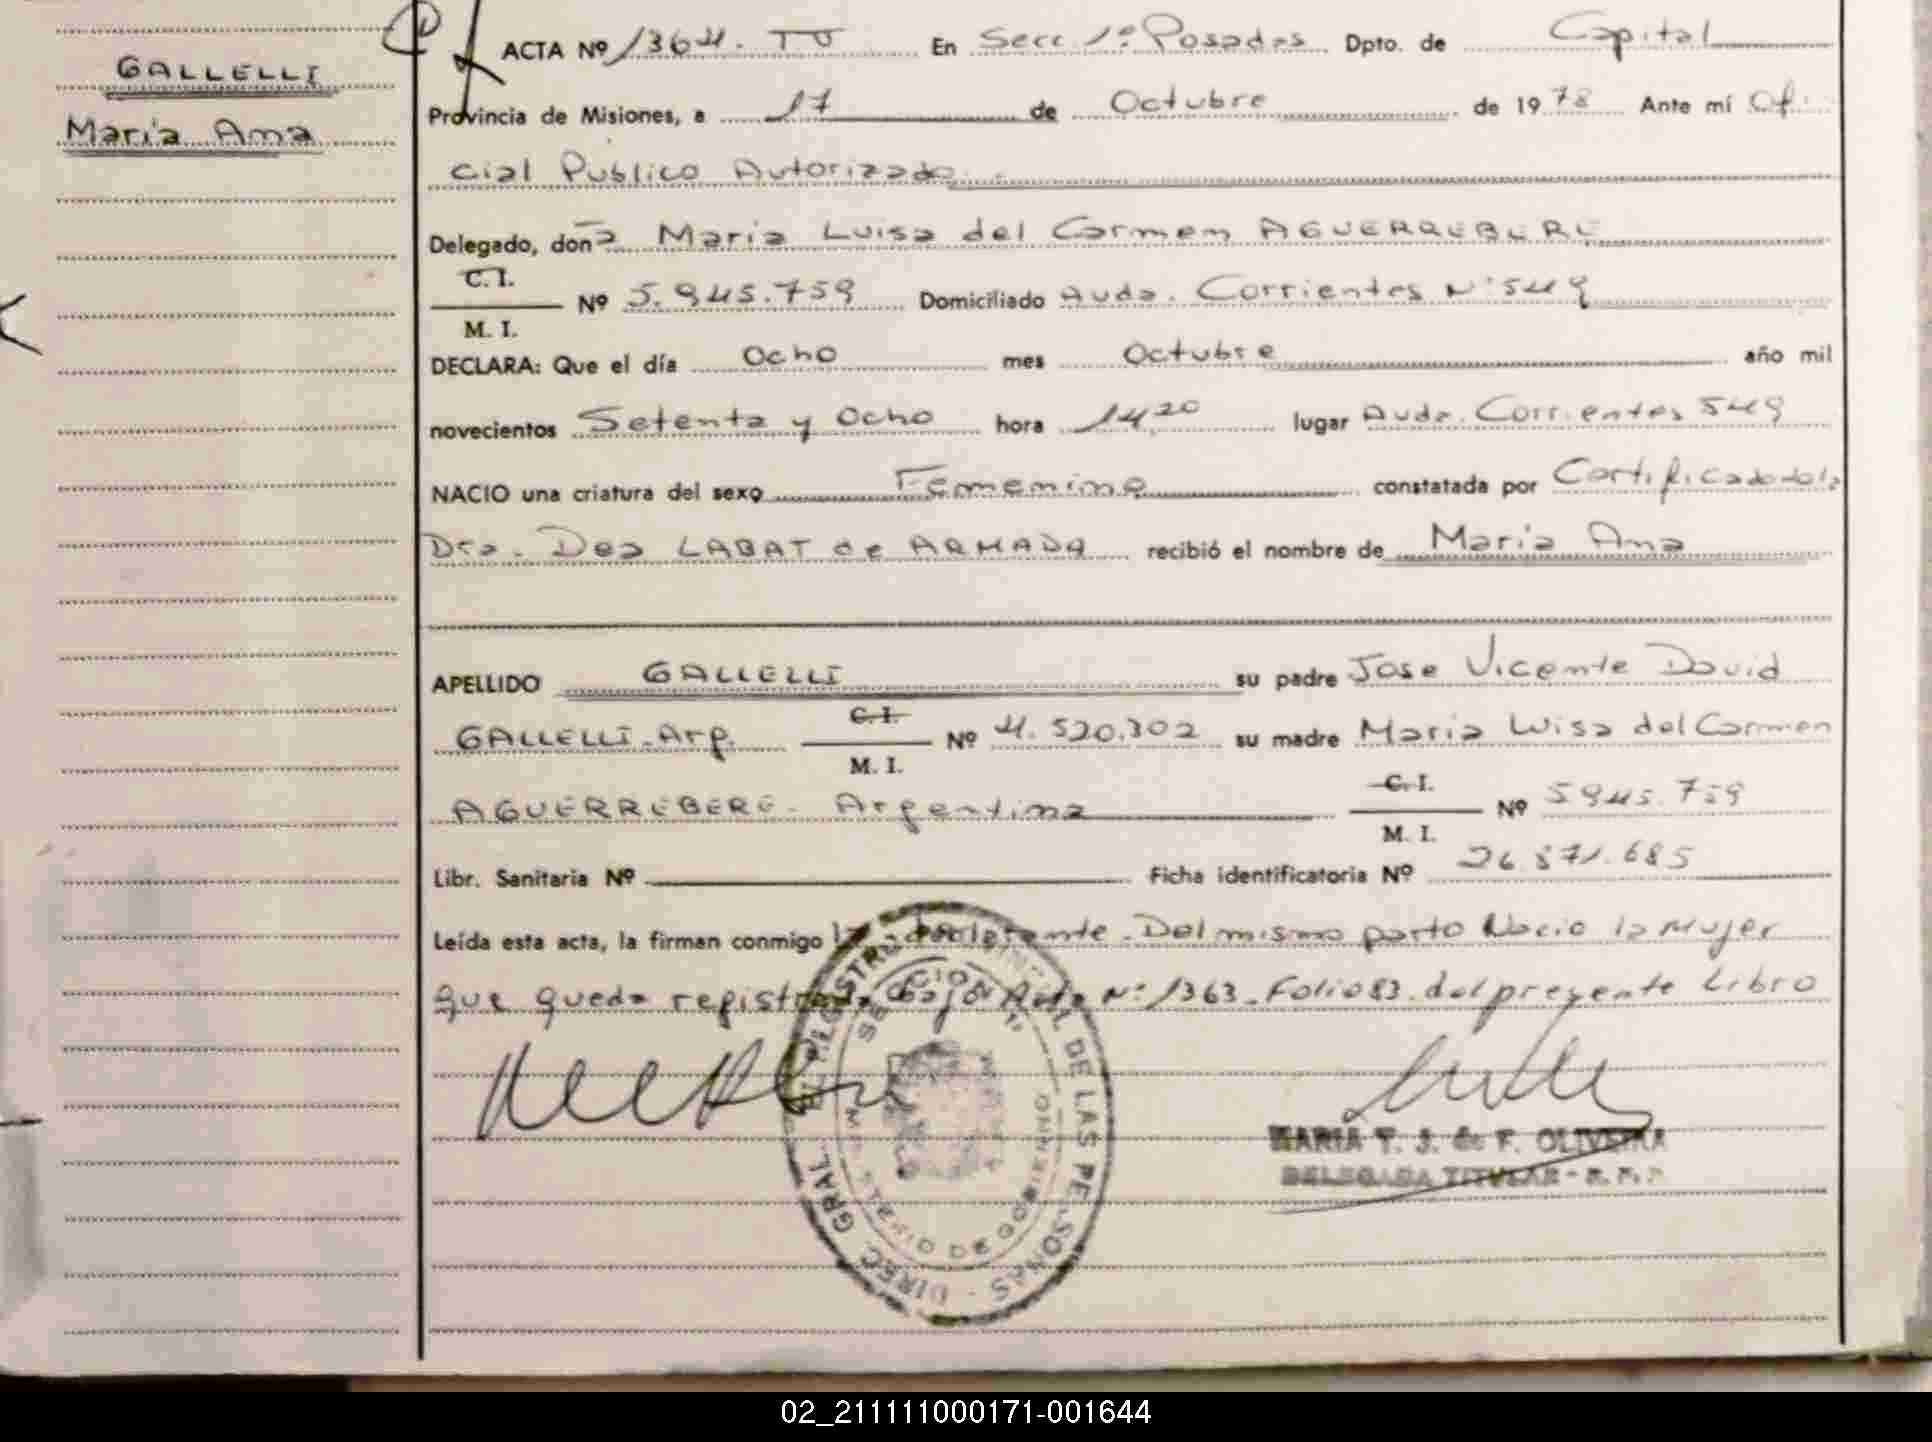 GALLELLI
María Ana
ACTA Nº 1364. TU En Secc. 1º Posadas Dpto. de Capital
Provincia de Misiones, a 17 de Octubre de 1978 Ante mí Ofi
cial Publico Autorizado.
Delegado, donª María Luisa del Carmen AGUERREBERE
C. I.
M. I. Nº 5.945.759 Domiciliado Avda. Corrientes Nº 549
DECLARA: Que el día Ocho mes Octubre año mil
novecientos Setenta y Ocho hora 14,20 lugar Avda. Corrientes 549
NACIO una criatura del sexo Femenino constatada por Certificado de la
Dra. Dea LABAT de ARMADA recibió el nombre de María Ana
APELLIDO GALLELLI su padre Jose Vicente David
GALLELLI-Arg. C. I. M. I. Nº 4.520.302 su madre María Luisa del Carmen
AGUERREBERE- Argentina C. I. M. I. Nº 5945.759
Libr. Sanitaria Nº Ficha identificatoria Nº 26.871.685
Leída esta acta, la firman conmigo la declarante. Del mismo parto Nacio la Mujer
que queda registrada bajo Acta Nº 1363. Folio 83. del presente Libro
DIREC. GRAL. DEL REGISTRO PROVINCIAL DE LAS PERSONAS
SECCION 1ª
MINISTERIO DE GOBIERNO
MARIA T. J. de F. OLIVEIRA
DELEGADA TITULAR - R. P. P.
02_211111000171-001644